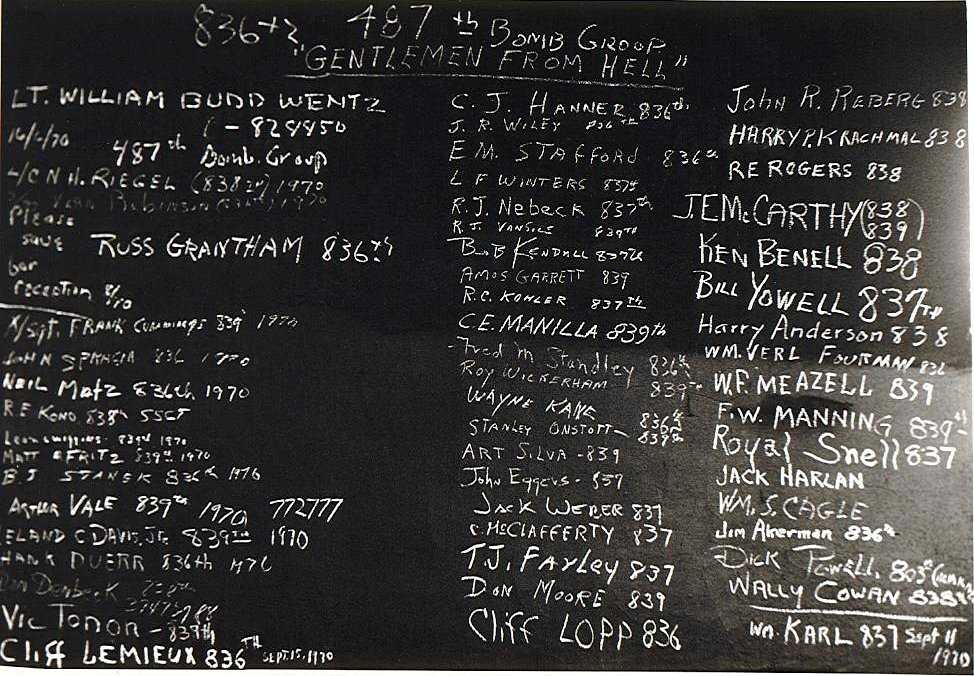 836th 487th Bomb Group
"GENTLEMEN FROM HELL"
LT. WILLIAM BUDD WENTZ
- 828850
487th Bomb. Group
L/C N H. RIEGEL (838th) 1970
Robinson 1970
Please
save
bar
reception
RUSS GRANTHAM 836th
S/Sgt. FRANK CUMMINGS 839 1970
JOHN 836 1970
NEIL Matz 836th 1970
R.E KONO 838th SSGT
839th 1970
MATT 839th 1970
B J STANEK 836th 1970
ARTHUR VALE 839th 1970 772777
ELAND C DAVIS, JR. 839TH 1970
HANK DUERR 836th 1970
Don
VIC TONOR - 839th
Cliff LEMIEUX 836TH SEPT. 15, 1970
C. J. HANNER 836th
J. R. WILEY 836TH
E M. STAFFORD 836th
L F WINTERS 837th
R. J. Nebeck 837th
R. J. 839TH
BOB KENDALL 837th
AMOS GARRETT 839
R.C. KOHLER 837TH
C.E. MANILLA 839th
Fred M Standley 836th
ROY WICKERHAM 839TH
WAYNE KANE 836th
STANLEY ONSTOTT 838th
ART SILVA - 839
John Eggers - 837
JACK WEBER 837
C. McCLAFFERTY 837
T.J. FARLEY 837
DON MOORE 839
Cliff LOPP 836
John R. REBERG 838
HARRY P. KRACHMAL 838
RE ROGERS 838
J.E. McCARTHY (838
839)
KEN BENELL 838
BILL YOWELL 837TH
Harry Anderson 838
WM. VERL FOUTMAN 836
W.F. MEAZELL 839
F.W. MANNING 839th
Royal Snell 837
JACK HARLAN
WM. S. CAGLE
Jim Akerman 836th
DICK POWELL,
WALLY COWAN 838th
WM. KARL 837 Sept 11
1970